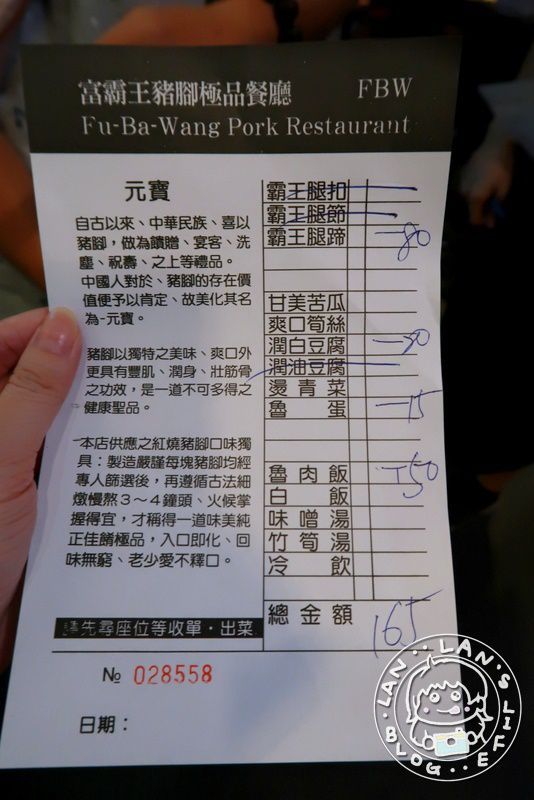 富霸王豬腳極品餐廳 FBW
Fu-Ba-Wang Pork Restaurant
元寶
自古以來、中華民族、喜以
豬腳，做為饋贈、宴客、洗
塵、祝壽、之上等禮品。
中國人對於、豬腳的存在價
值便予以肯定、故美化其名
為-元寶。
豬腳以獨特之美味、爽口外
更具有豐肌、潤身、壯筋骨
之功效，是一道不可多得之
健康聖品。
本店供應之紅燒豬腳口味獨
具：製造嚴謹每塊豬腳均經
專人篩選後，再遵循古法細
燉慢熬3～4鐘頭、火候掌
握得宜，才稱得一道味美純
正佳餚極品，入口即化、回
味無窮、老少愛不釋口。
請先尋座位等收單·出菜
№ 028558
日期：
霸王腿扣
霸王腿節
霸王腿蹄 80
甘美苦瓜
爽口筍絲
潤白豆腐
潤油豆腐
燙青菜
魯蛋 15
魯肉飯 50
白飯
味噌湯
竹筍湯
冷飲
總金額 165
LAN LAN'S LIFE BLOG